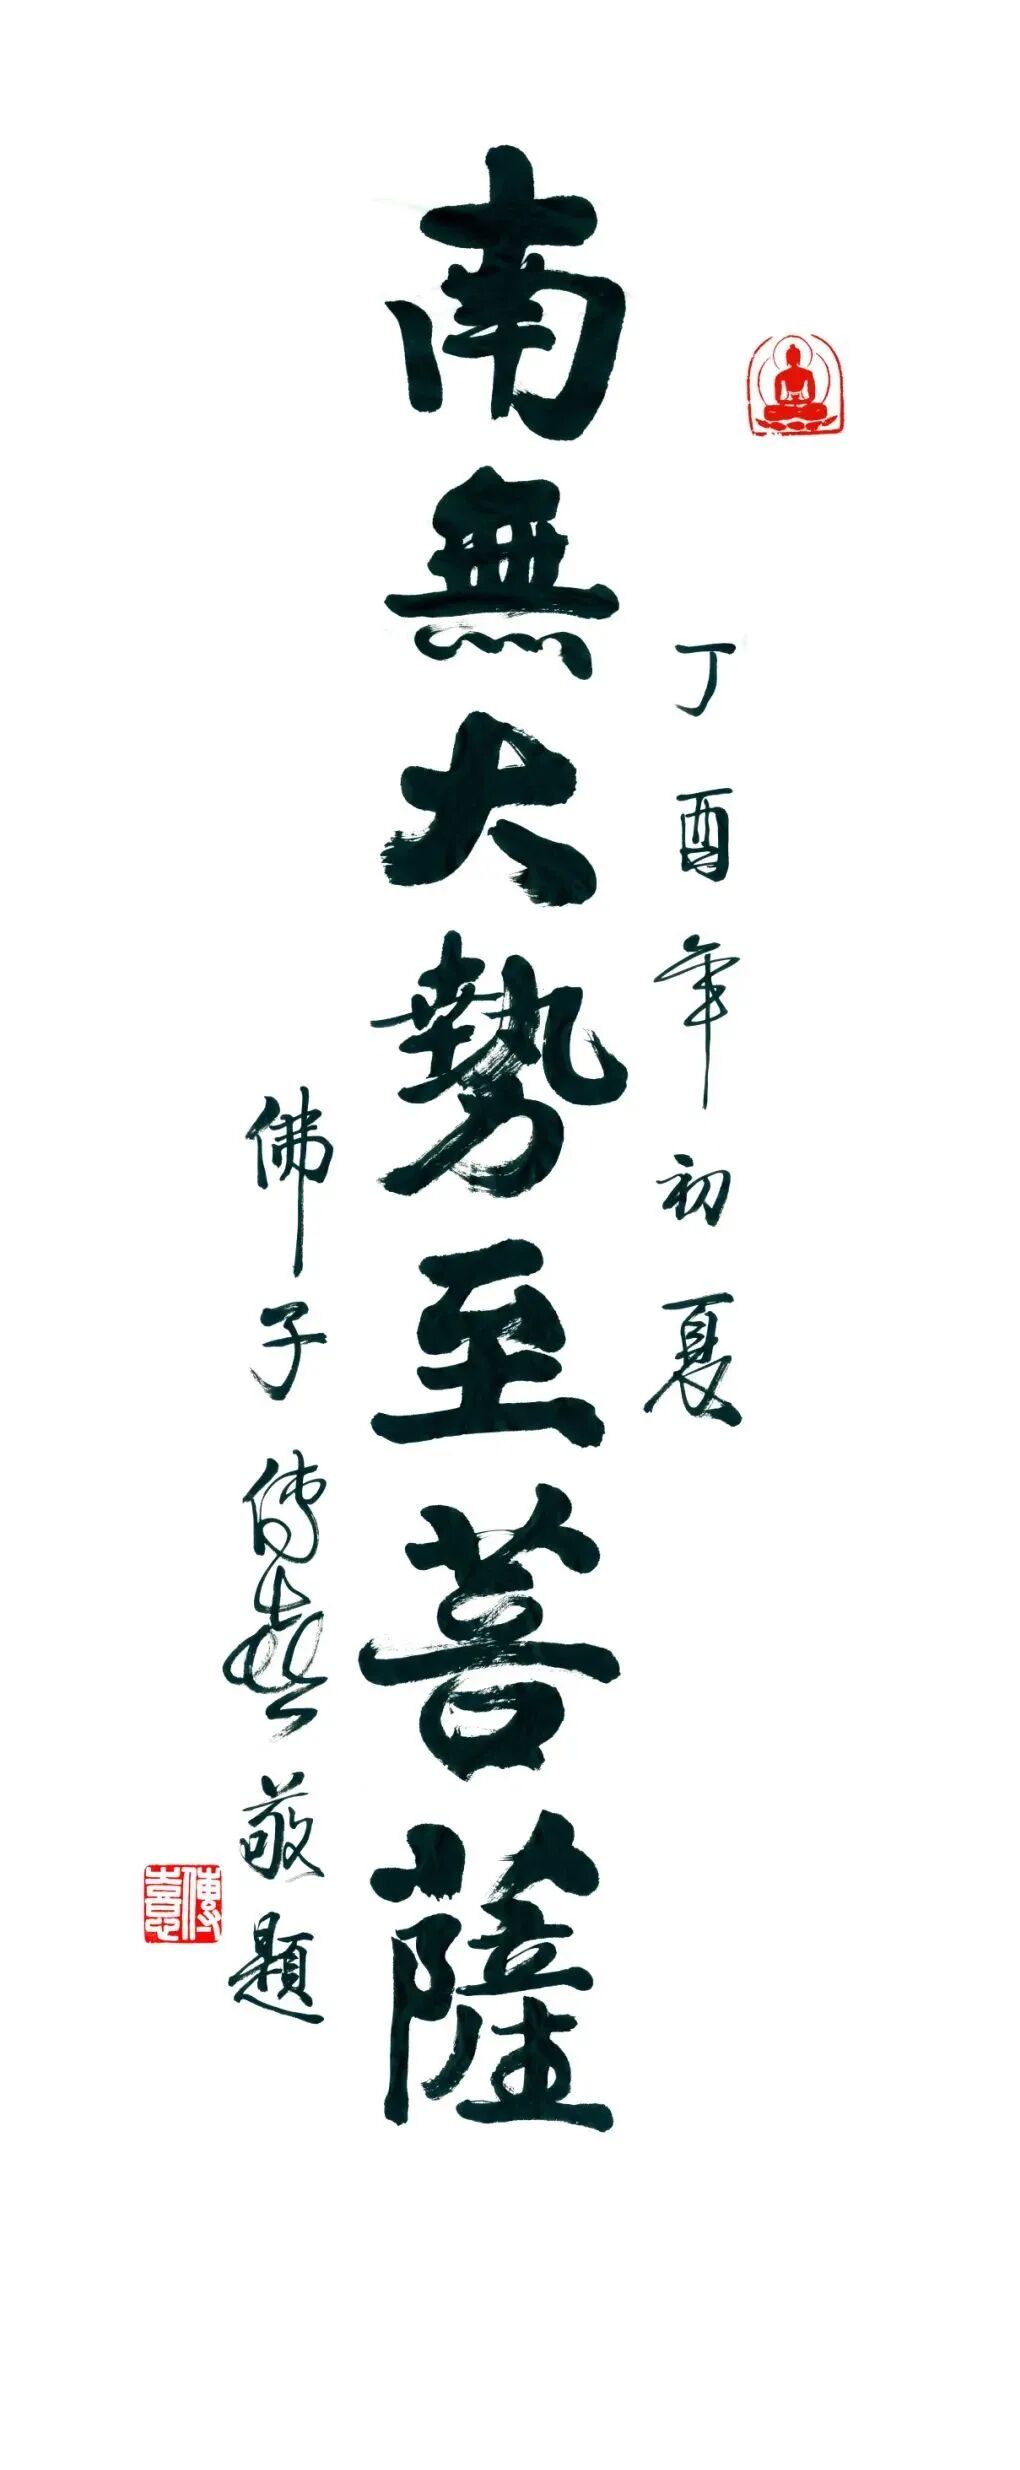 丁酉年初夏
南無大勢至菩薩
佛子傳喜敬題
傳喜